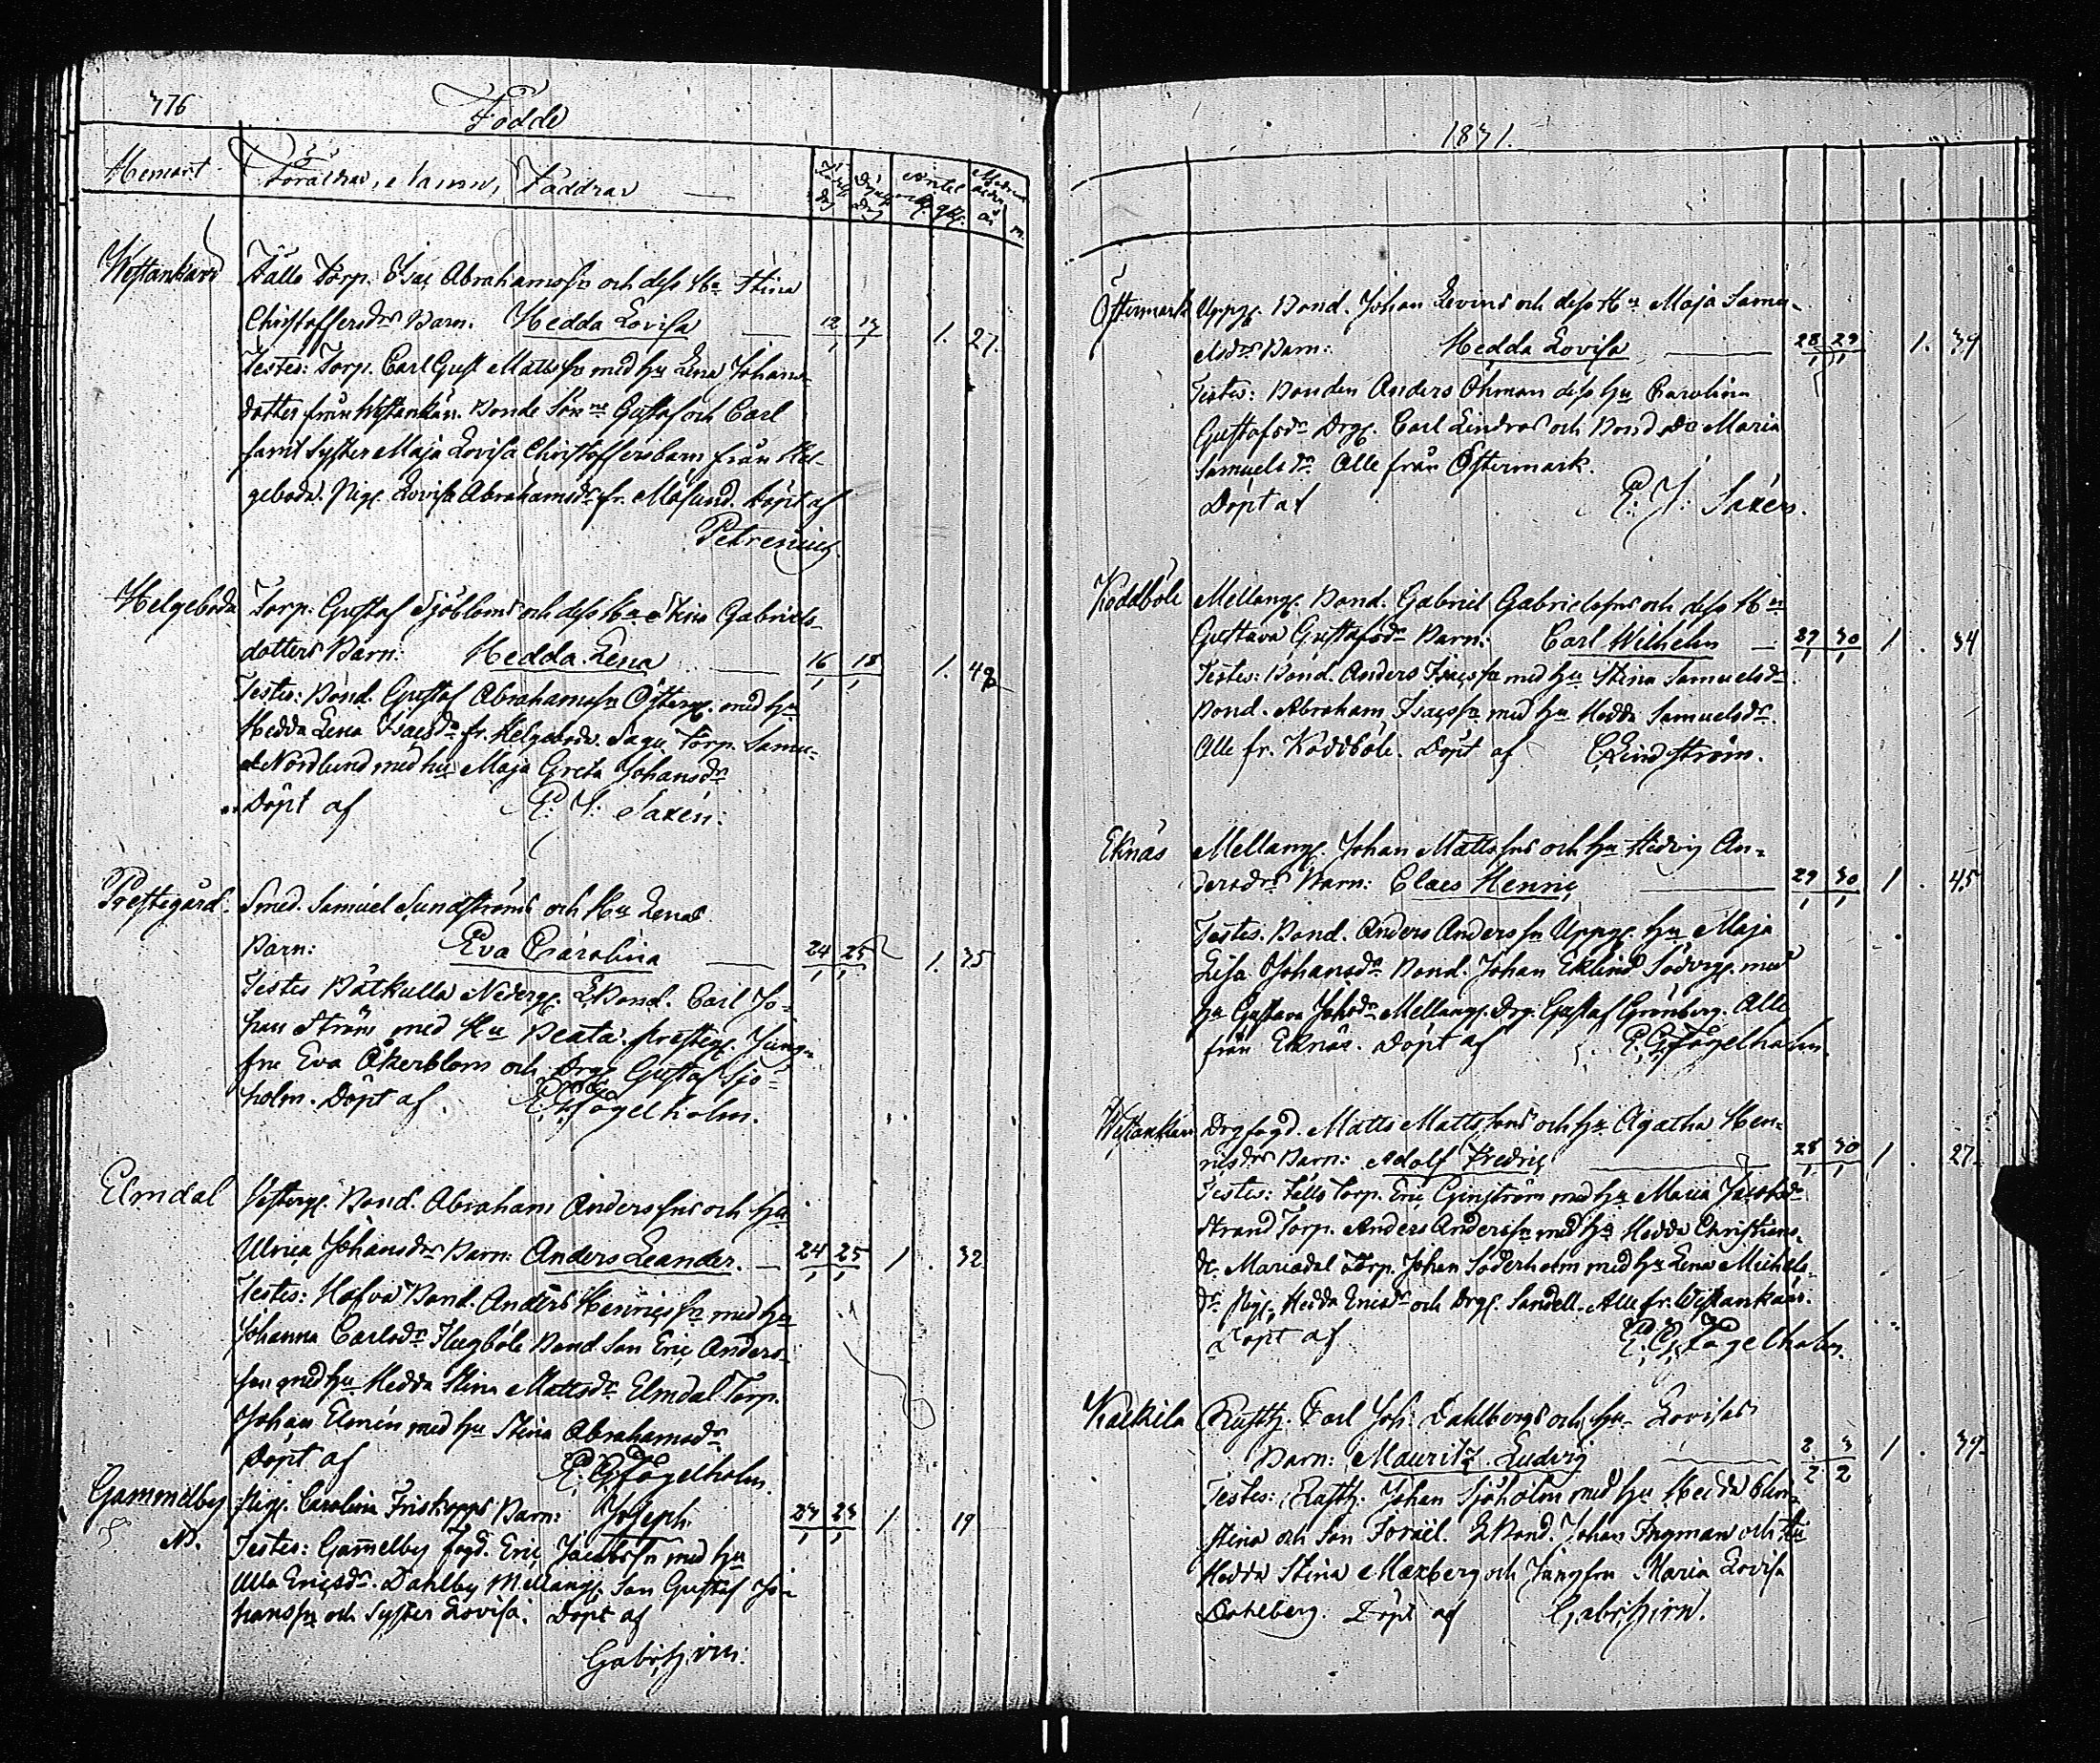 376
Födde
Hemort
Föräldrar, Namn, Faddrar
Westankärr
Tälle Torp. Isac Abrahamsson och dess Hu Stina
Christoffersdrs Barn. Hedda Lovisa 12 17 1. 27.
1 1
Testes: Torp. Carl Gust Mattsson med hu Lena Johans-
dotter från Westankärr. Bonde Sönne Gustaf och Carl
samt Syster Maja Lovisa Christoffersbarn från Hel-
geboda. Pig. Lovisa Abrahamsdr fr. Mosund. Döpt af
Petrenius
Helgeboda
Torp: Gustaf Sjöbloms och dess Hu Gabriels-
dotters Barn: Hedda Lena 16 18 1. 42
1 1
Testes: Bond. Gustaf Abrahamsson Österg. med hu
Hedda Lena Isacsdr fr. Helgeboda. Sagu Torp. Samu-
el Nordlund med hu Maja Greta Johansdr
Döpt af E. J. Saxén:
Prestegård.
Smed. Samuel Sundströms och Hu Lenas
Barn: Eva Carolina 24 25 1. 35
1 1
Testes Båtkulla Nederg. Bond. Carl Jo-
han Ström med Hu Beata: Presteg. Jung-
fru Eva Åkerblom och Drg Gustaf Sjö-
holm. Döpt af Fogelholm.
Elmdal
Vesterg. Bond. Abraham Anderssons och hu
Ulrica Johansdrs Barn: Anders Leander. 24 25 1. 32
1 1
Testes: Hofva Bond. Anders Henricsson med hu
Johanna Carlsdr Hugböle Bond. Son Eric Anders-
son med hu Hedda Stina Mattsdr Elmdal Torp.
Johan Elmén med hu Stina Abrahamsdr
Döpt af E. G. Fogelholm.
Gammelby
Pig. Carolina Friskopps Barn: Joseph. 23 23 1. 19
1 1
Testes: Gam̄elby fogd. Eric Jacobsson med hu
Ulla Ericsdr. Dahlby Mellang. Son Gustaf Jo-
hansson och Syster Lovisa. Döpt af
1831.
Östermark
Uppg. Bond. Johan Levins och dess Hu Maja Samu-
elsdrs Barn: Hedda Lovisa 28 29 1. 34
1 1
Testes: Bonden Anders Öhman dess hu Carolina
Gustafsdr Drg. Carl Lindroos och Bond. Dr Maria
Samuelsdr Alle från Östermark.
Döpt af E. J. Saxén.
Koddböle
Mellang. Bond. Gabriel Gabrielssons och dess Hu
Gustava Gustafsdr Barn: Carl Wilhelm 29 30 1. 34
1 1
Testes: Bond. Anders Isacsson med hu Stina Samuelsdr.
Bond. Abraham Isacsson med hu Hedda Samuelsdr.
Alle fr. Koddböle. Döpt af Lindström.
Eknäs
Mellang. Johan Mattssons och hu Hedvig An-
dersdrs Barn: Claes Henric 29 30 1. 45
1 1
Testes. Bond. Anders Andersson Uppg. hu Maja
Lisa Johansdr Bond. Johan Eklund Söderg. med
hu Gustava Johsdr Mellang. Drg. Gustaf Grönberg. Alle
från Eknäs. Döpt af E. G. Fogelholm.
Westankärr
Drgfogd. Matts Mattssons och hu Agatha Hen-
ricsdrs Barn: Adolf Fredric 28 30 1. 27.
1 1
Testes: Tälls Torp. Eric Genström med hu Maria Jacobsdr
Strand Torp. Anders Andersson med hu Hedda Christians-
dr. Mariedal Torp. Johan Söderholm med hu Lena Michels-
dr. Pig. Hedda Ericsdr och Drg. Sandell. Alle fr. Westankärr.
Döpt af E. G. Fogelholm.
Kackila
Rustg. Carl Joh. Dahlbergs och hu Lovisas
Barn: Mauritz Ludvig 2 3 1. 39
2 2
Testes: Rustg. Johan Sjöholm med hu Hedda
Stina och Son Israël. Bond. Johan Ingman och Hu
Hedda Stina Maxberg och Jungfru Maria Lovisa
Dahlberg. Döpt af